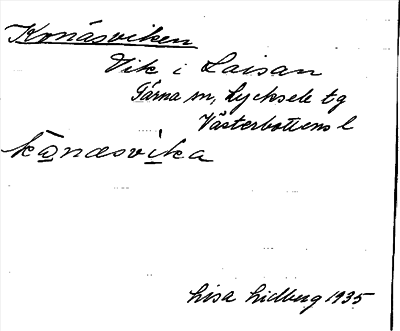 Kronåsviken
Vik i Laisan
Tärna sn, Lycksele tg
Västerbottens l
kånasvika
Lisa Lidberg 1935